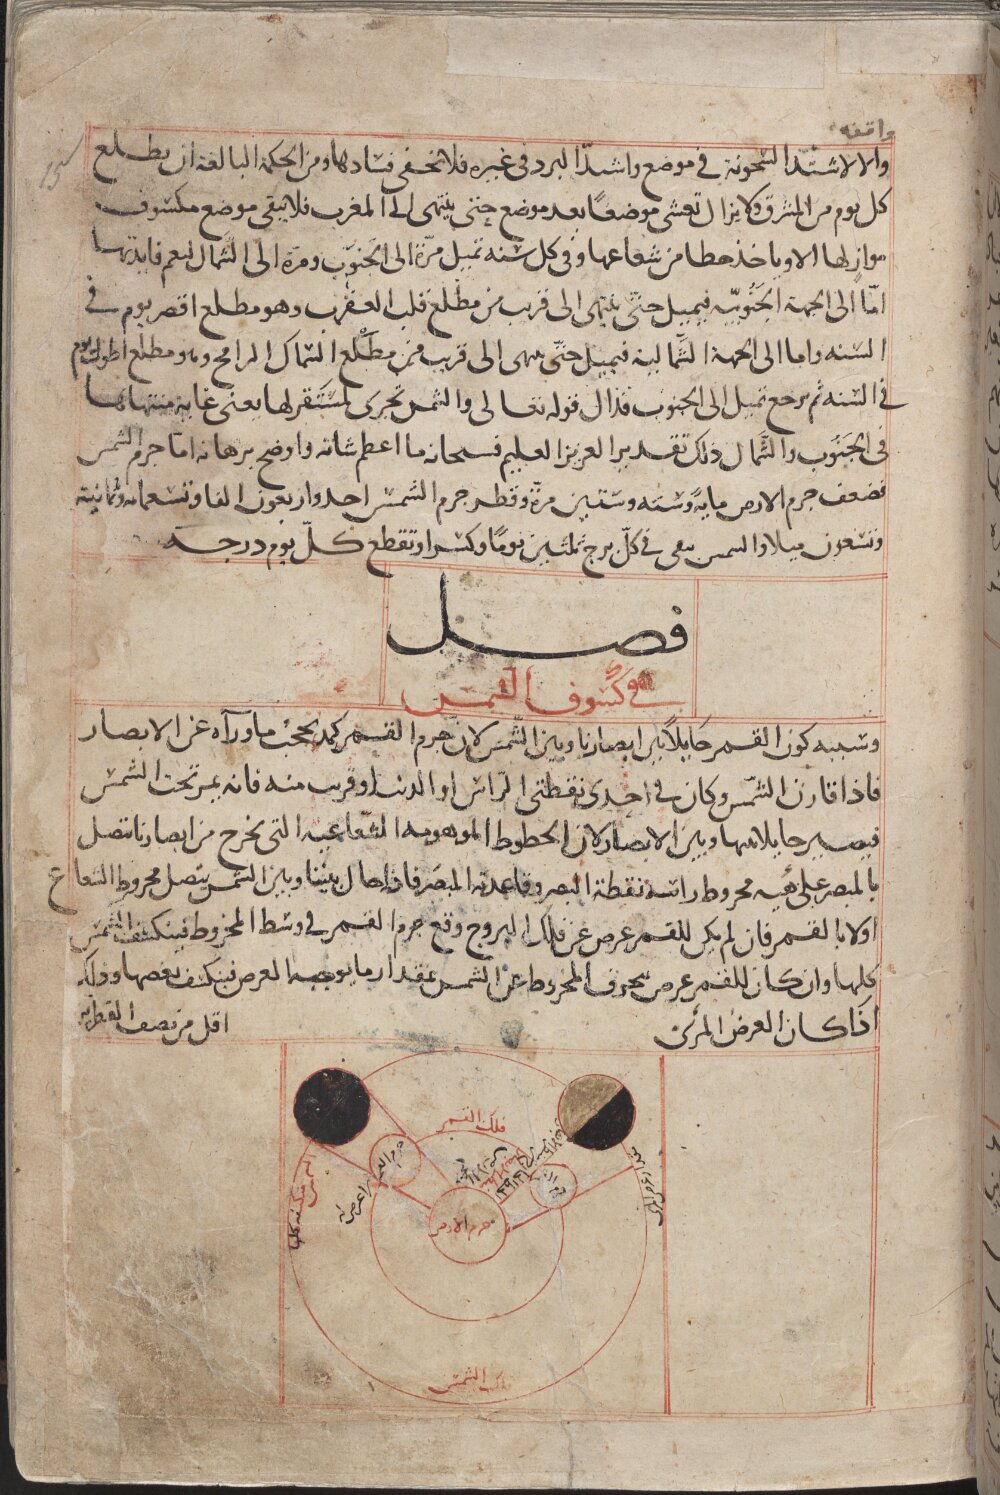 واقفه
والا لاشتدا السخونة في موضع واشتدا البرد في غيره فلا تخفى فسادهما ومن الحكمة البالغة ان يطلع
كل يوم من المشرق ولا يزال تغشى موضعا بعد موضع حتى ينتهى الى المغرب فلا يبقى موضع مكشوف
مواز لها الا وياخذ حظا من شعاعها وفي كل سنه تميل مرة الى الجنوب ومرة الى الشمال ليعم فايدتها
امّا الى الجهة الجنوبيه فيميل حتى ينتهى الى قريب من مطلع قلب العقرب وهو مطلع اقصر يوم في
السنه واما الى الجهة الشمالية فيميل حتى ينتهى الى قريب من مطلع السماك الرامح وهو مطلع اطول يوم
في السنه ثم يرجع تميل الى الجنوب فذال قوله تعالى والشمس تجرى لمستقر لها يعنى غاية منتهاها
فى الجنوب والشمال ذلك تقدير العزيز العليم فسبحانه ما اعظم شانه واوضح برهانه امّا جرم الشمس
فضعف جرم الارض ماية وسته وستين مرة وقطر جرم الشمس احد واربعون الفا وتسعمائه وثمانية
وتسعون ميلا والشمس تبقى في كل برج ثلثين يوما وكسرا وتقطع كل يوم درجه
فصل
في كسوف الشمس
وسببه كون القمر حايلا بين ابصارنا وبين الشمس لان جرم القمر كمد يحجب ما ورآه عن الابصار
فاذا قارن الشمس وكان في احدى نقطتى الراس او الذنب او قريب منه فانه يمر تحت الشمس
فيصير حايلا بينها وبين الابصار لان الخطوط الموهومه الشعاعيه التى تخرج من ابصارنا تتصل
بالمبصر على هيه مخروط راسه نقطة البصر وقاعدته المبصر فاذا حال بيننا وبين الشمس يتصل مخروط الشعاع
اولا بالقمر فان لم يكن للقمر عرض عن فلك البروج وقع جرم القمر في وسط المخروط فينكسف الشمس
كلها وان كان للقمر عرض ينحرف المخروط عن الشمس بمقدار ما يوجبه العرض فينكسف بعضها وذلك
اذا كان العرض المرئى اقل من نصف القطرين
فلك القمر
جرم القمر
جرم الارض
القمر
الشمس منكسفه كلها
فلك الشمس